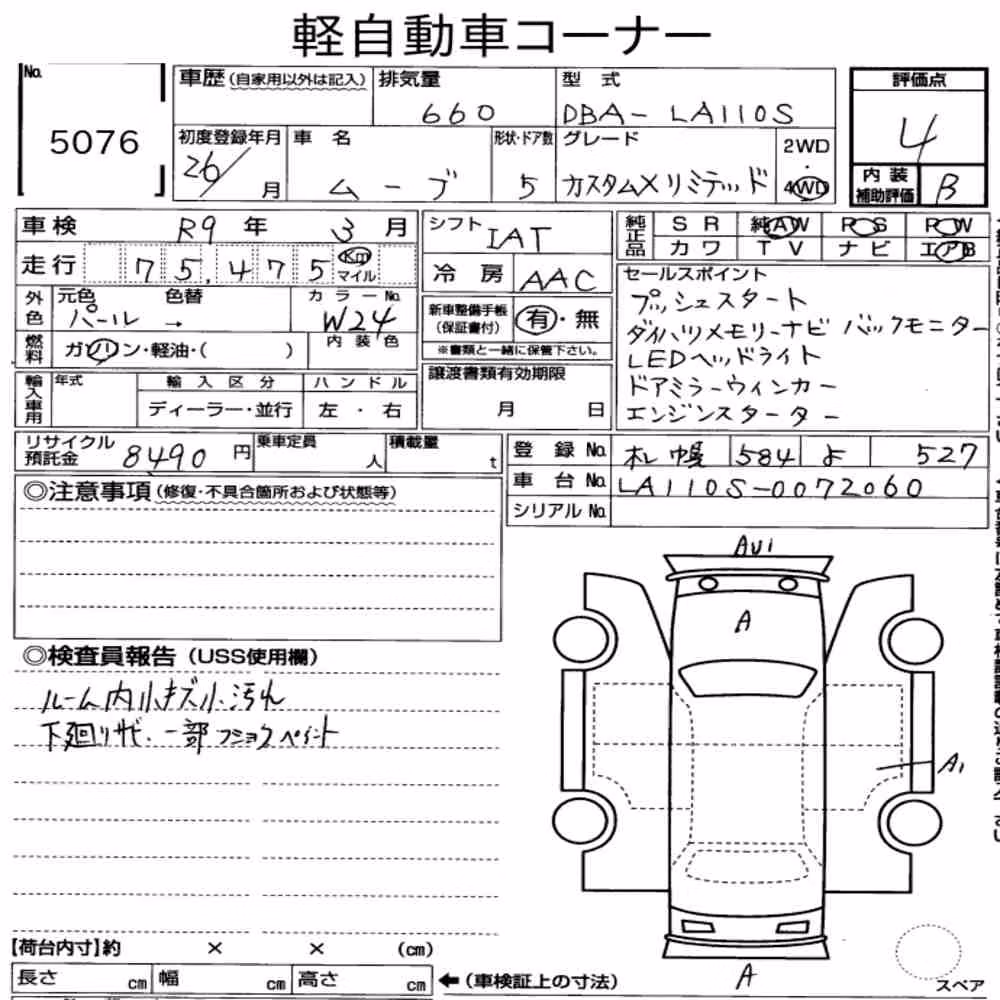 軽自動車コーナー
No.
5076
車歴(自家用以外は記入)
排気量
660
型式
DBA-LA110S
評価点
4
初度登録年月
26/ 月
車名
ムーブ
形状・ドア数
5
グレード
カスタムXリミテッド
2WD
・
4WD
内装
補助評価
B
車検 R9年 3月
走行 75,475 Km マイル
外色
元色 色替
パール →
カラーNo.
W24
内装色
燃料
ガソリン・軽油・( )
輸入車用
年式
輸入区分
ハンドル
ディーラー・並行
左・右
シフト IAT
冷房 AAC
新車整備手帳
(保証書付)
有・無
※書類と一緒に保管下さい。
譲渡書類有効期限
月 日
純正品
SR 純AW PS PW
カワ TV ナビ エアB
セールスポイント
プッシュスタート
ダイハツメモリーナビ バックモニター
LEDヘッドライト
ドアミラーウィンカー
エンジンスターター
リサイクル
預託金 8490 円
乗車定員 人
積載量 t
登録No. 札幌 584 よ 527
車台No. LA110S-0072060
シリアルNo.
◎注意事項(修復・不具合箇所および状態等)
◎検査員報告(USS使用欄)
ルーム内小キズ小汚れ
下廻りサビ、一部フショクペイント
AU1
A
A1
A
【荷台内寸】約 × × (cm)
長さ cm 幅 cm 高さ cm
←(車検証上の寸法)
スペア